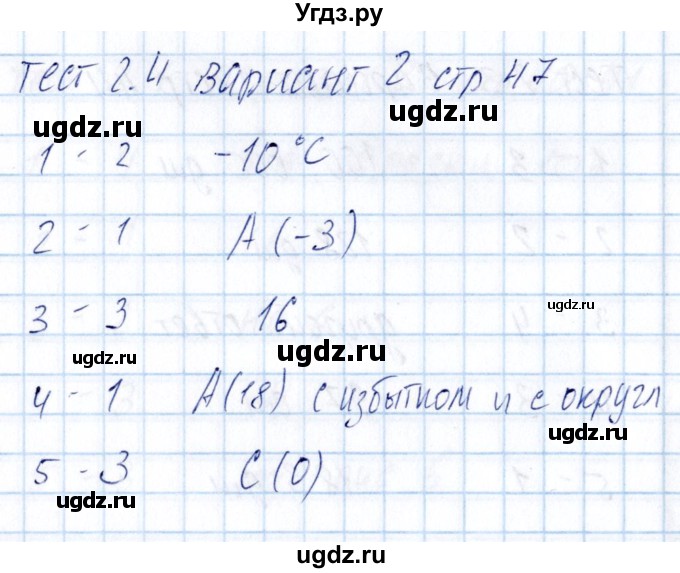 Угдз.ру
Тест 2.4 вариант 2 стр 47
ugdz.ru ugdz.ru
1 - 2 -10°С
2 - 1 А (-3)
ugdz.ru ugdz.ru
3 - 3 16 ugdz.ru
ugdz.ru ugdz.ru
4 - 1 А(18) с избытком и с округл
ugdz.ru ugdz.ru
5 - 3 С (0)
ugdz.ru
ugdz.ru